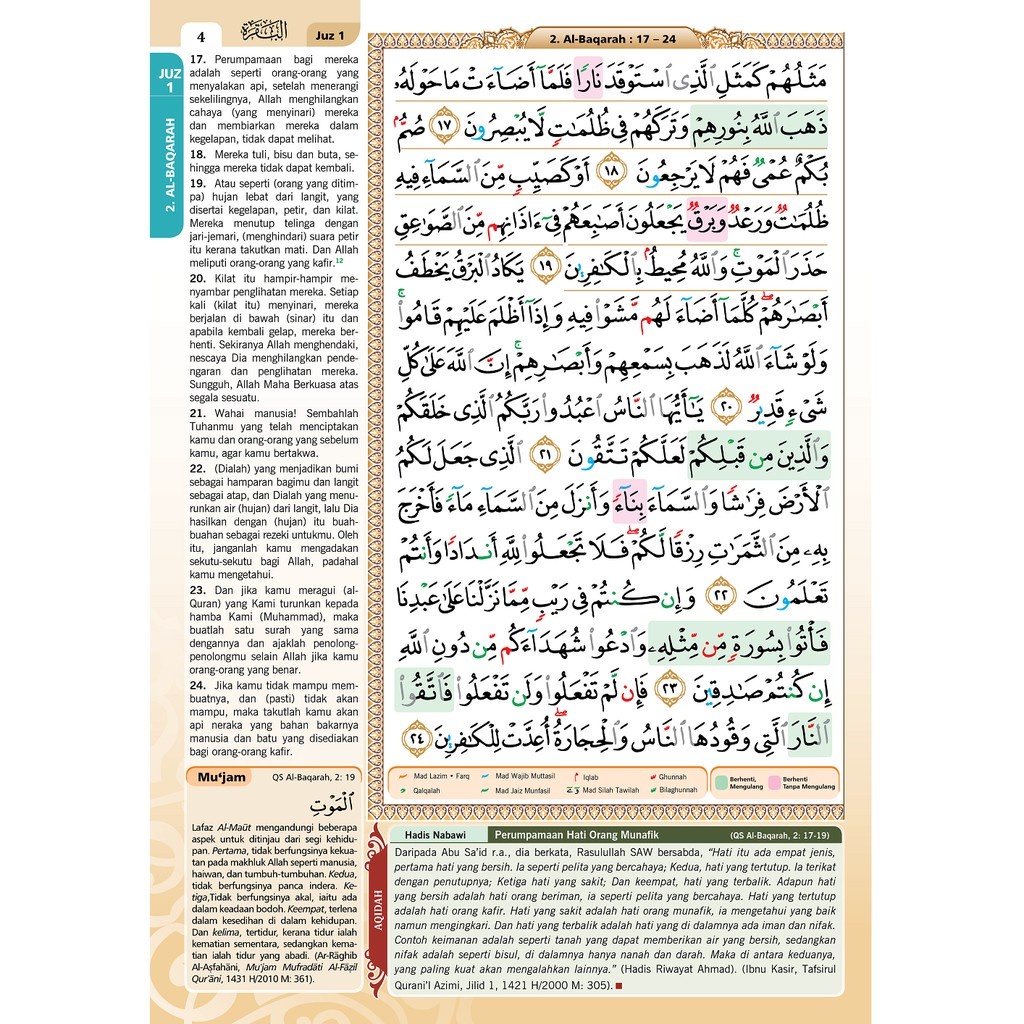 4
البقرة
Juz 1
JUZ
1
2. AL-BAQARAH
17. Perumpamaan bagi mereka
adalah seperti orang-orang yang
menyalakan api, setelah menerangi
sekelilingnya, Allah menghilangkan
cahaya (yang menyinari) mereka
dan membiarkan mereka dalam
kegelapan, tidak dapat melihat.
18. Mereka tuli, bisu dan buta, se-
hingga mereka tidak dapat kembali.
19. Atau seperti (orang yang ditim-
pa) hujan lebat dari langit, yang
disertai kegelapan, petir, dan kilat.
Mereka menutup telinga dengan
jari-jemari, (menghindari) suara petir
itu kerana takutkan mati. Dan Allah
meliputi orang-orang yang kafir.12
20. Kilat itu hampir-hampir me-
nyambar penglihatan mereka. Setiap
kali (kilat itu) menyinari, mereka
berjalan di bawah (sinar) itu dan
apabila kembali gelap, mereka ber-
henti. Sekiranya Allah menghendaki,
nescaya Dia menghilangkan pende-
ngaran dan penglihatan mereka.
Sungguh, Allah Maha Berkuasa atas
segala sesuatu.
21. Wahai manusia! Sembahlah
Tuhanmu yang telah menciptakan
kamu dan orang-orang yang sebelum
kamu, agar kamu bertakwa.
22. (Dialah) yang menjadikan bumi
sebagai hamparan bagimu dan langit
sebagai atap, dan Dialah yang menu-
runkan air (hujan) dari langit, lalu Dia
hasilkan dengan (hujan) itu buah-
buahan sebagai rezeki untukmu. Oleh
itu, janganlah kamu mengadakan
sekutu-sekutu bagi Allah, padahal
kamu mengetahui.
23. Dan jika kamu meragui (al-
Quran) yang Kami turunkan kepada
hamba Kami (Muhammad), maka
buatlah satu surah yang sama
dengannya dan ajaklah penolong-
penolongmu selain Allah jika kamu
orang-orang yang benar.
24. Jika kamu tidak mampu mem-
buatnya, dan (pasti) tidak akan
mampu, maka takutlah kamu akan
api neraka yang bahan bakarnya
manusia dan batu yang disediakan
bagi orang-orang kafir.
Mu‘jam QS Al-Baqarah, 2: 19
الْمَوْتِ
Lafaz Al-Maūt mengandungi beberapa
aspek untuk ditinjau dari segi kehidu-
pan. Pertama, tidak berfungsinya kekua-
tan pada makhluk Allah seperti manusia,
haiwan, dan tumbuh-tumbuhan. Kedua,
tidak berfungsinya panca indera. Ke-
tiga,Tidak berfungsinya akal, iaitu ada
dalam keadaan bodoh. Keempat, terlena
dalam kesedihan di dalam kehidupan.
Dan kelima, tertidur, kerana tidur ialah
kematian sementara, sedangkan kema-
tian ialah tidur yang abadi. (Ar-Rāghib
Al-Aṣfahāni, Mu'jam Mufradāti Al-Fāẓil
Qur'āni, 1431 H/2010 M: 361).
2. Al-Baqarah : 17 – 24
مَثَلُهُمْ كَمَثَلِ الَّذِى اسْتَوْقَدَ نَارًا فَلَمَّآ اَضَآءَتْ مَا حَوْلَهٗ
ذَهَبَ اللّٰهُ بِنُوْرِهِمْ وَتَرَكَهُمْ فِيْ ظُلُمٰتٍ لَّا يُبْصِرُوْنَ ١٧ صُمٌّ
بُكْمٌ عُمْيٌ فَهُمْ لَا يَرْجِعُوْنَ ١٨ اَوْ كَصَيِّبٍ مِّنَ السَّمَآءِ فِيْهِ
ظُلُمٰتٌ وَّرَعْدٌ وَّبَرْقٌ يَجْعَلُوْنَ اَصَابِعَهُمْ فِيْٓ اٰذَانِهِمْ مِّنَ الصَّوَاعِقِ
حَذَرَ الْمَوْتِۗ وَاللّٰهُ مُحِيْطٌۢ بِالْكٰفِرِيْنَ ١٩ يَكَادُ الْبَرْقُ يَخْطَفُ
اَبْصَارَهُمْۗ كُلَّمَآ اَضَآءَ لَهُمْ مَّشَوْا فِيْهِ وَاِذَآ اَظْلَمَ عَلَيْهِمْ قَامُوْاۗ
وَلَوْ شَآءَ اللّٰهُ لَذَهَبَ بِسَمْعِهِمْ وَاَبْصَارِهِمْۗ اِنَّ اللّٰهَ عَلٰى كُلِّ
شَيْءٍ قَدِيْرٌ ٢٠ يٰٓاَيُّهَا النَّاسُ اعْبُدُوْا رَبَّكُمُ الَّذِيْ خَلَقَكُمْ
وَالَّذِيْنَ مِنْ قَبْلِكُمْ لَعَلَّكُمْ تَتَّقُوْنَ ٢١ الَّذِيْ جَعَلَ لَكُمُ
الْاَرْضَ فِرَاشًا وَّالسَّمَآءَ بِنَآءً وَّاَنْزَلَ مِنَ السَّمَآءِ مَآءً فَاَخْرَجَ
بِهٖ مِنَ الثَّمَرٰتِ رِزْقًا لَّكُمْۚ فَلَا تَجْعَلُوْا لِلّٰهِ اَنْدَادًا وَّاَنْتُمْ
تَعْلَمُوْنَ ٢٢ وَاِنْ كُنْتُمْ فِيْ رَيْبٍ مِّمَّا نَزَّلْنَا عَلٰى عَبْدِنَا
فَأْتُوْا بِسُوْرَةٍ مِّنْ مِّثْلِهٖ وَادْعُوْا شُهَدَآءَكُمْ مِّنْ دُوْنِ اللّٰهِ
اِنْ كُنْتُمْ صٰدِقِيْنَ ٢٣ فَاِنْ لَّمْ تَفْعَلُوْا وَلَنْ تَفْعَلُوْا فَاتَّقُوا
النَّارَ الَّتِيْ وَقُوْدُهَا النَّاسُ وَالْحِجَارَةُۖ اُعِدَّتْ لِلْكٰفِرِيْنَ ٢٤
Mad Lazim • Farq Mad Wajib Muttasil Iqlab Ghunnah
Qalqalah Mad Jaiz Munfasil Mad Silah Tawilah Bilaghunnah
Berhenti, Mengulang
Berhenti Tanpa Mengulang
Hadis Nabawi Perumpamaan Hati Orang Munafik (QS Al-Baqarah, 2: 17-19)
AQIDAH
Daripada Abu Sa'id r.a., dia berkata, Rasulullah SAW bersabda, “Hati itu ada empat jenis,
pertama hati yang bersih. Ia seperti pelita yang bercahaya; Kedua, hati yang tertutup. Ia terikat
dengan penutupnya; Ketiga hati yang sakit; Dan keempat, hati yang terbalik. Adapun hati
yang bersih adalah hati orang beriman, ia seperti pelita yang bercahaya. Hati yang tertutup
adalah hati orang kafir. Hati yang sakit adalah hati orang munafik, ia mengetahui yang baik
namun mengingkari. Dan hati yang terbalik adalah hati yang di dalamnya ada iman dan nifak.
Contoh keimanan adalah seperti tanah yang dapat memberikan air yang bersih, sedangkan
nifak adalah seperti bisul, di dalamnya hanya nanah dan darah. Maka di antara keduanya,
yang paling kuat akan mengalahkan lainnya.” (Hadis Riwayat Ahmad). (Ibnu Kasir, Tafsirul
Qurani'l Azimi, Jilid 1, 1421 H/2000 M: 305).